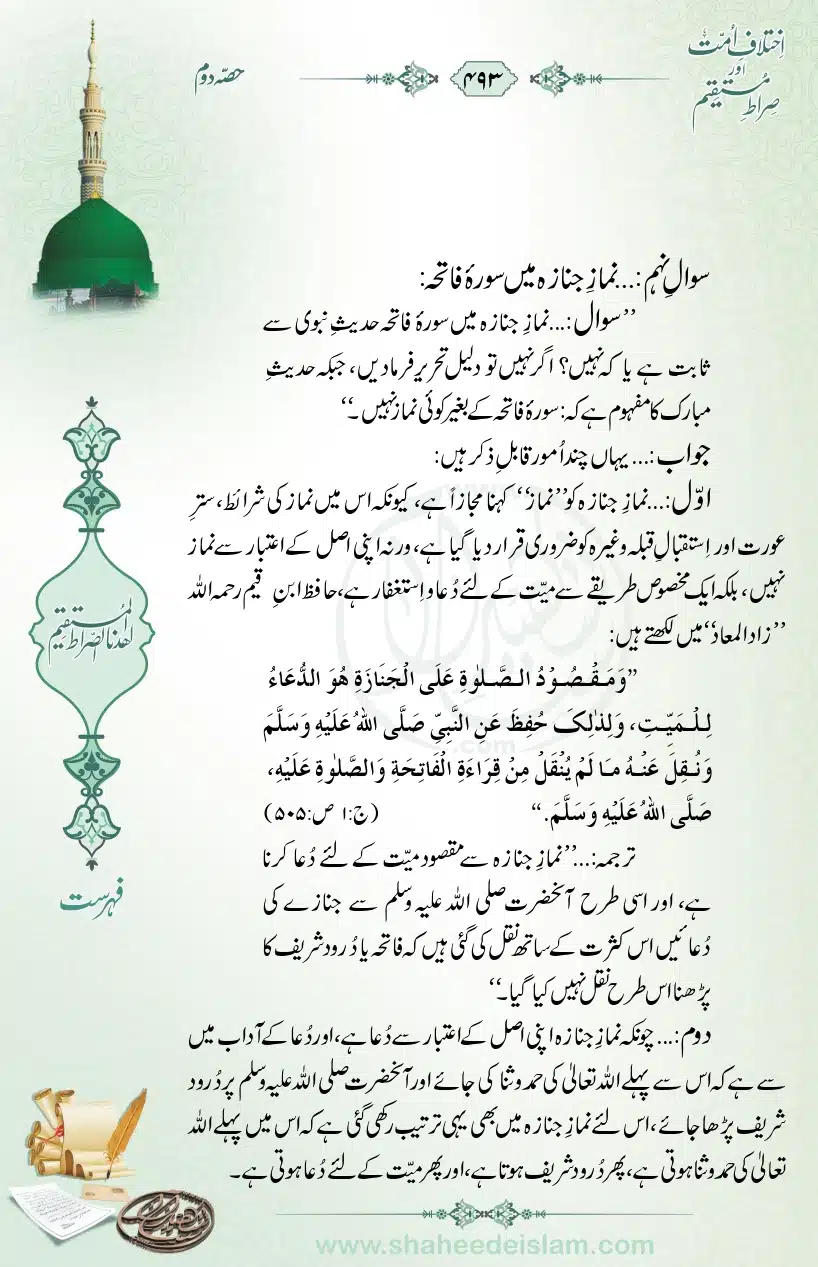 اِختلافِ اُمّت
اور
صِراطِ مُستقیم
۴۹۳
حصّہ دوم
سوالِ نہم:...نمازِ جنازہ میں سورۂ فاتحہ:
’’سوال:...نمازِ جنازہ میں سورۂ فاتحہ حدیثِ نبوی سے
ثابت ہے یا کہ نہیں؟ اگر نہیں تو دلیل تحریر فرمادیں، جبکہ حدیثِ
مبارک کا مفہوم ہے کہ: سورۂ فاتحہ کے بغیر کوئی نماز نہیں۔‘‘
جواب:... یہاں چند اُمور قابلِ ذکر ہیں:
اوّل:...نمازِ جنازہ کو ’’نماز‘‘ کہنا مجازاً ہے، کیونکہ اس میں نماز کی شرائط، سترِ
عورت اور اِستقبالِ قبلہ وغیرہ کو ضروری قرار دیا گیا ہے، ورنہ اپنی اصل کے اعتبار سے نماز
نہیں، بلکہ ایک مخصوص طریقے سے میّت کے لئے دُعا و اِستغفار ہے، حافظ ابنِ قیم رحمہ اللہ
’’زاد المعاد‘‘ میں لکھتے ہیں:
”وَمَقْصُوْدُ الصَّلٰوةِ عَلَى الْجَنَازَةِ هُوَ الدُّعَاءُ
لِلْمَيِّتِ، وَلِذٰلِکَ حُفِظَ عَنِ النَّبِيِّ صَلَّى اللهُ عَلَيْهِ وَسَلَّمَ
وَنُقِلَ عَنْهُ مَا لَمْ يُنْقَلْ مِنْ قِرَاءَةِ الْفَاتِحَةِ وَالصَّلٰوةِ عَلَيْهِ،
صَلَّى اللهُ عَلَيْهِ وَسَلَّمَ.“ (ج:۱ ص:۵۰۵)
ترجمہ:...’’نمازِ جنازہ سے مقصود میّت کے لئے دُعا کرنا
ہے، اور اسی طرح آنحضرت صلی اللہ علیہ وسلم سے جنازے کی
دُعائیں اس کثرت کے ساتھ نقل کی گئی ہیں کہ فاتحہ یا دُرود شریف کا
پڑھنا اس طرح نقل نہیں کیا گیا۔‘‘
دوم:... چونکہ نمازِ جنازہ اپنی اصل کے اعتبار سے دُعا ہے، اور دُعا کے آداب میں
سے ہے کہ اس سے پہلے اللہ تعالیٰ کی حمد و ثنا کی جائے اور آنحضرت صلی اللہ علیہ وسلم پر دُرود
شریف پڑھا جائے، اس لئے نمازِ جنازہ میں بھی یہی ترتیب رکھی گئی ہے کہ اس میں پہلے اللہ
تعالیٰ کی حمد و ثنا ہوتی ہے، پھر دُرود شریف ہوتا ہے، اور پھر میّت کے لئے دُعا ہوتی ہے۔
اهدنا الصّراط المُستقیم
فہرست
www.shaheedeislam.com